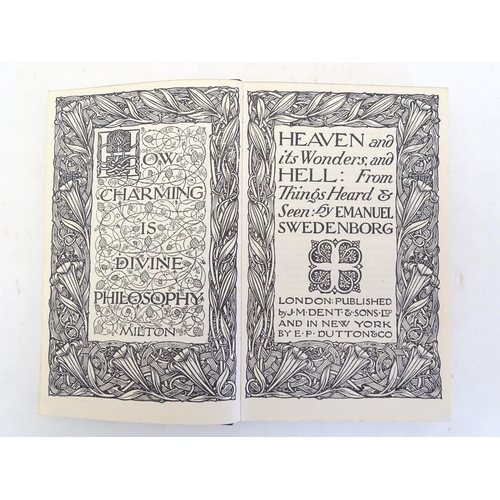 HOW
CHARMING
IS
DIVINE
PHILOSOPHY
MILTON
HEAVEN and
its Wonders, and
HELL: From
Things Heard &
Seen: by EMANUEL
SWEDENBORG
LONDON: PUBLISHED
by J. M. DENT & SONS LTD
AND IN NEW YORK
BY E. P. DUTTON & CO